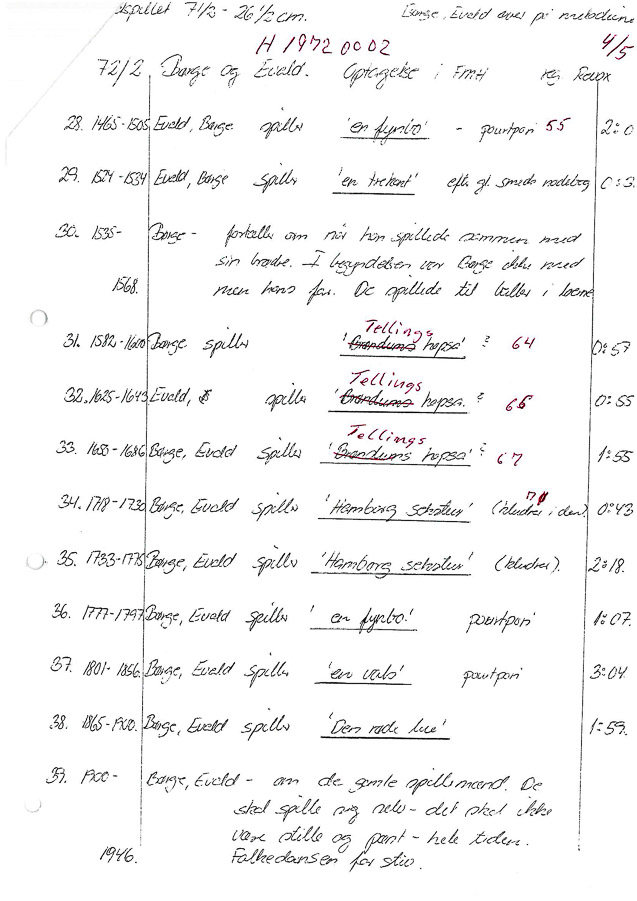 spillet 7 1/2 - 26 1/2 cm. Børge, Evald over på melodierne
H 1972 0002 4/5
72/2 Børge og Evald. Optagelse i FMH reg. Revox
28. 1465-1505 Evald, Børge spiller 'en fynbo' - pourtpori 55 2:0
29. 1524-1534 Evald, Børge spiller 'en trekant' efter gl. smeds nodebog 0:3
30. 1535- Børge - fortæller om når han spillede sammen med
sin broder. I begyndelsen var Børge ikke med
1568. men hans far. De spillede til baller i
Tellings
31. 1582-1600 Børge spiller 'Brandums hopsa' ? 64 0:57
Tellings
32. 1625-1643 Evald, spiller 'Brandums hopsa. ? 65 0:55
Tellings
33. 1650-1686 Børge, Evald spiller 'Brandums hopsa' ? 67 1:55
34. 1718-1730 Børge, Evald spiller 'Hamborg schottis' (kludrer i den). 0:43
35. 1733-1775 Børge, Evald spiller 'Hamborg schottis' (kludrer). 2:18.
36. 1777-1797 Børge, Evald spiller 'en fynbo.' pourtpori 1:07.
37. 1801-1856. Børge, Evald spiller 'en vals' pourtpori 3:04.
38. 1865-1900. Børge, Evald spiller 'Den røde hue' 1:59.
39. 1900- Børge, Evald - om de gamle spillemænd. De
skal spille sig selv - det skal ikke
være stille og pænt - hele tiden.
1946. Folkedansen for stiv.